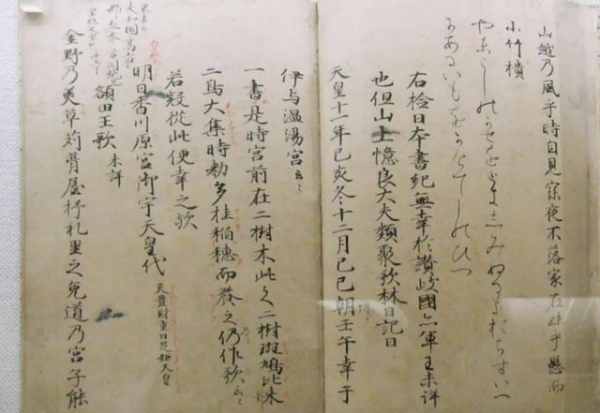 山越乃風乎時自見寐夜不落家在妹乎懸而
小竹樻
やまこしのかせをときしみぬるよおちすいへ
にあるいもをかけてしのひつ
右撿日本書紀無幸於讃岐國亦軍王未詳
也但山上憶良大夫類聚歌林曰記曰
天皇十一年己亥冬十二月己巳朔壬午幸于
伊与温湯宮云々
一書是時宮前在二樹木此之二樹斑鳩比米
二鳥大集時勅多挂稲穂而養之仍作歌云々
若疑從此便幸之歟
明日香川原宮御宇天皇代 天豊財重日足姫天皇
額田王歌 未詳
金野乃美草苅葺屋杼礼里之兎道乃宮子能